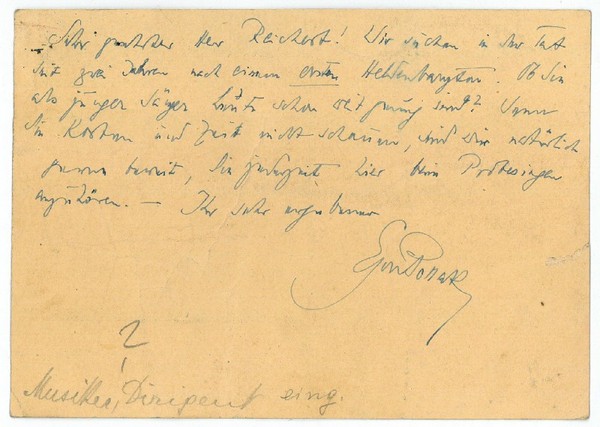 Sehr geehrter Herr Reichert! Wir suchen in der Tat
seit zwei Jahren nach einem ersten Heldenbaryton. Ob Sie
als junger Säger heute schon reif genug sind? Wenn
Sie Kosten und Zeit nicht scheuen, sind wir natürlich
gerne bereit, Sie jederzeit hier beim Probesingen
anzuhören. — Ihr sehr ergebener
Egon Pollak
?
Musiker, Dirigent eing.